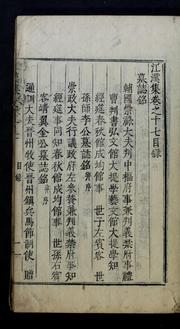 江漢集卷之十七目録
墓誌銘
朝國崇祿大夫判中樞府事兼
曹判書弘文館大提學藝文館大提學知
經筵春秋館成均館事 世子左賓客 世
孫師李公墓誌銘 并序
崇政大夫行議政府左參贊兼判義禁府事知
經筵事同知春秋館成均館事 世孫右賓
客靖翼金公墓誌銘 并序
通訓大夫晉州牧使晉州鎮兵馬節制使 贈
目録